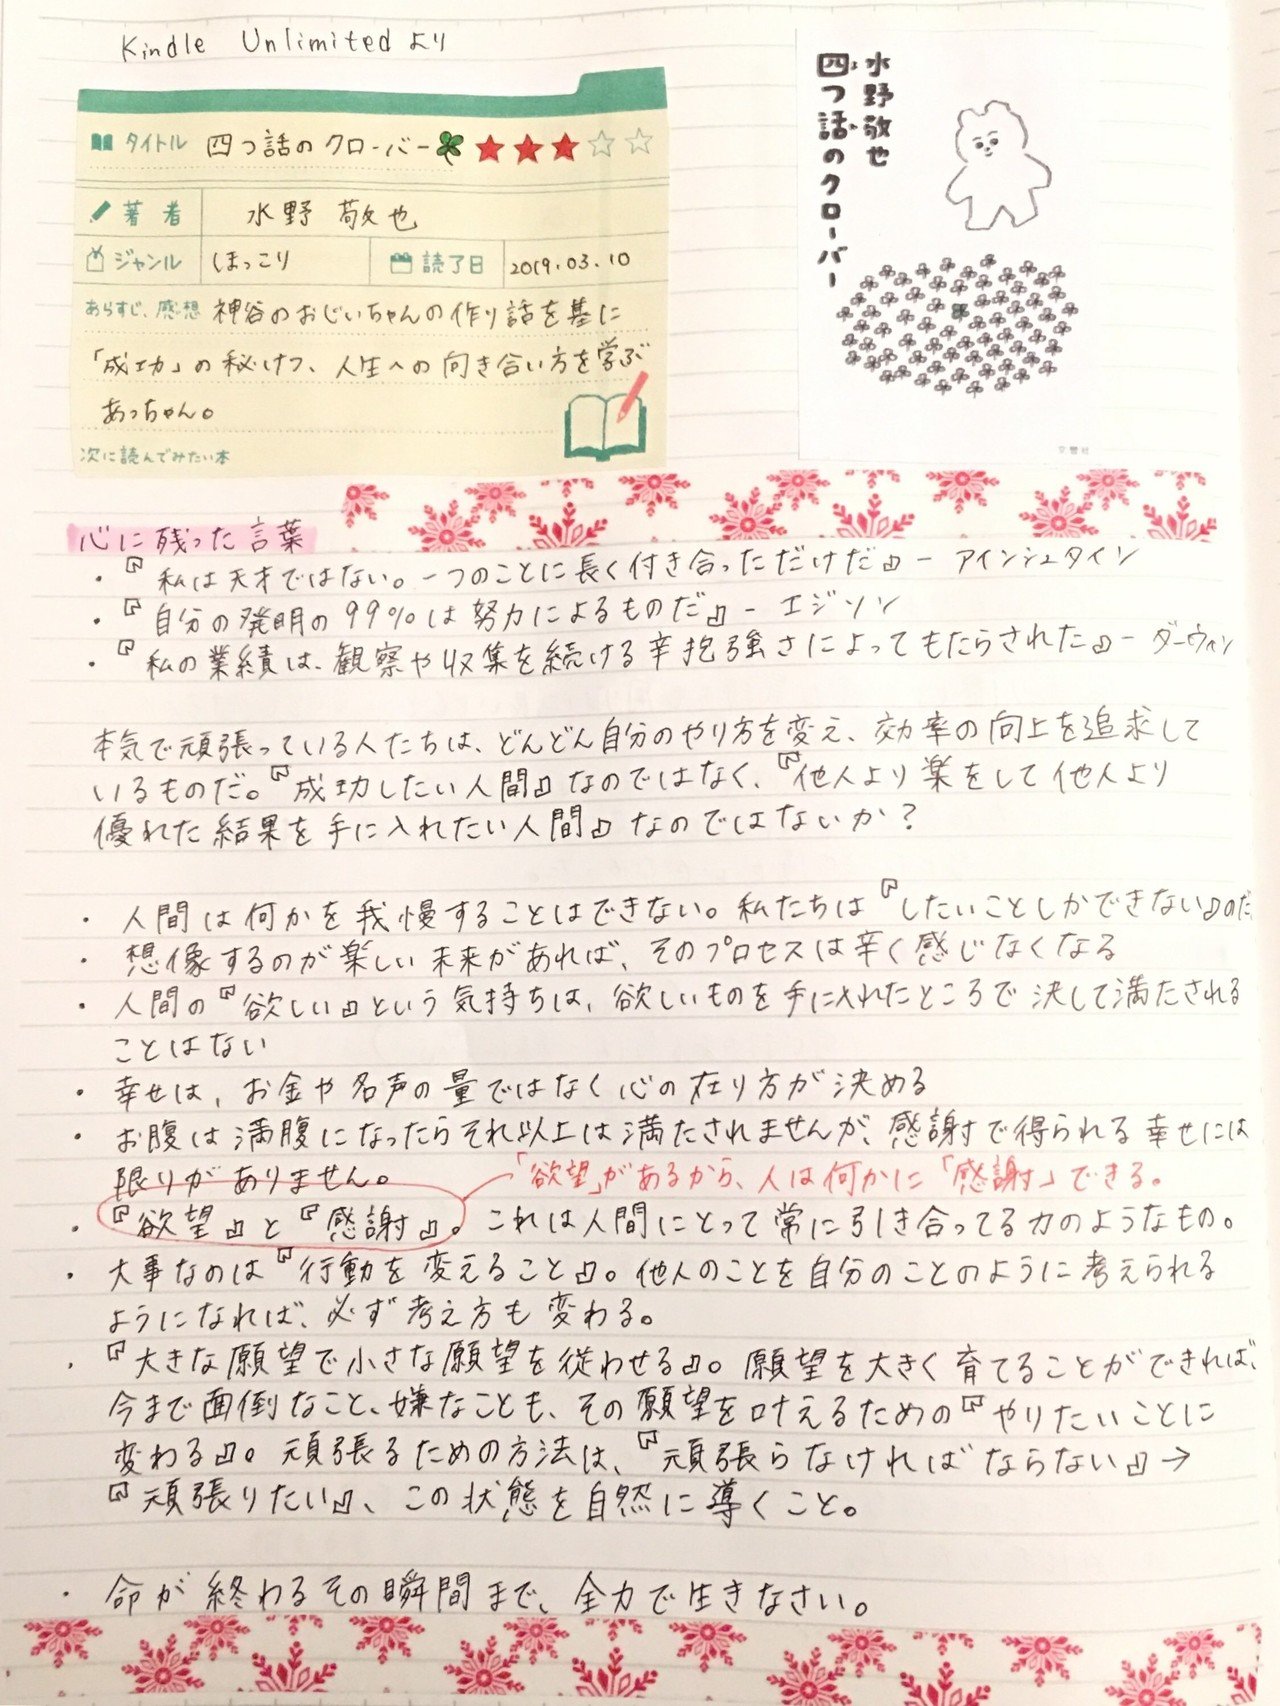 Kindle Unlimitedより
タイトル 四つ話のクローバー
著者 水野 敬也
ジャンル ほっこり 読了日 2019.03.10
あらすじ、感想 神谷のおじいちゃんの作り話を基に
「成功」の秘けつ、人生への向き合い方を学ぶ
あっちゃん。
次に読んでみたい本
水野敬也
四つ話のクローバー
文響社
心に残った言葉
・『私は天才ではない。一つのことに長く付き合っただけだ』- アインシュタイン
・『自分の発明の99%は努力によるものだ』- エジソン
・『私の業績は、観察や収集を続ける辛抱強さによってもたらされた』- ダーウィン
本気で頑張っている人たちは、どんどん自分のやり方を変え、効率の向上を追求して
いるものだ。『成功したい人間』なのではなく、『他人より楽をして他人より
優れた結果を手に入れたい人間』なのではないか?
・人間は何かを我慢することはできない。私たちは『したいことしかできない』のだ。
・想像するのが楽しい未来があれば、そのプロセスは辛く感じなくなる
・人間の『欲しい』という気持ちは、欲しいものを手に入れたところで決して満たされる
ことはない
・幸せは、お金や名声の量ではなく心の在り方が決める
・お腹は満腹になったらそれ以上は満たされませんが、感謝で得られる幸せには
限りがありません。
「欲望」があるから、人は何かに「感謝」できる。
・『欲望』と『感謝』。これは人間にとって常に引き合ってる力のようなもの。
・大事なのは『行動を変えること』。他人のことを自分のことのように考えられる
ようになれば、必ず考え方も変わる。
・『大きな願望で小さな願望を従わせる』。願望を大きく育てることができれば、
今まで面倒なこと、嫌なことも、その願望を叶えるための『やりたいことに
変わる』。頑張るための方法は、『頑張らなければならない』→
『頑張りたい』、この状態を自然に導くこと。
・命が終わるその瞬間まで、全力で生きなさい。